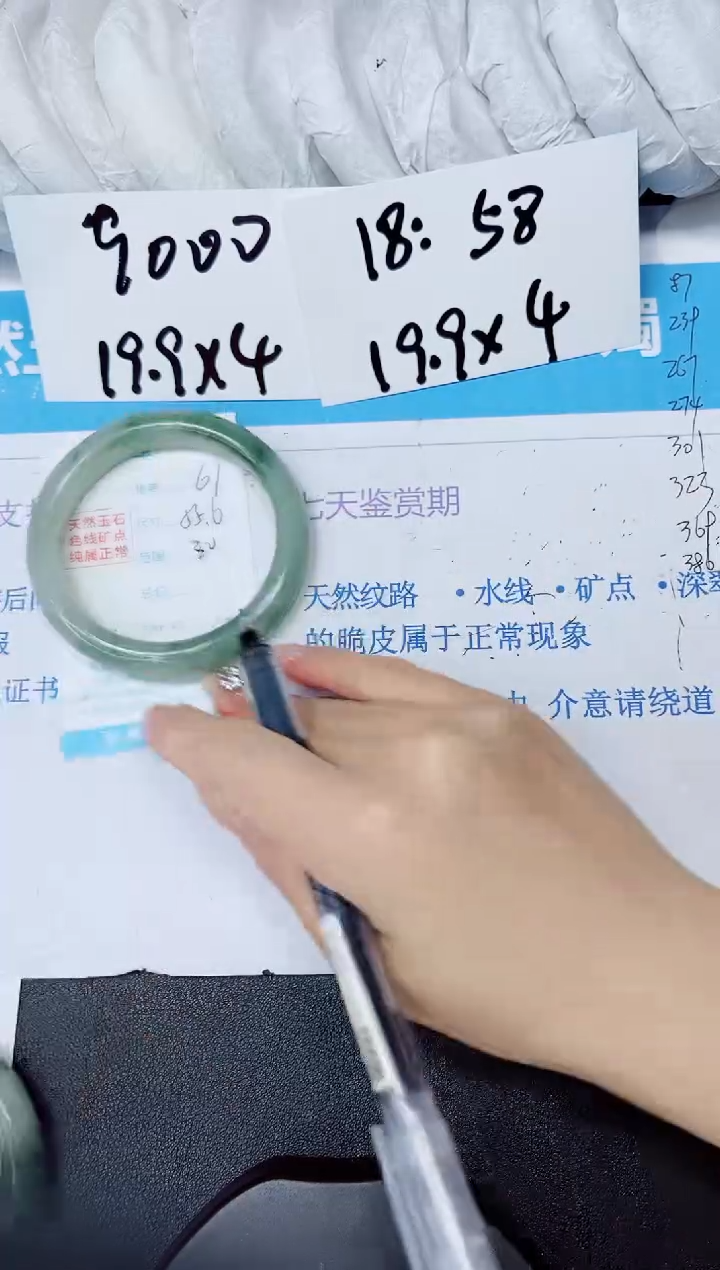 9000
19.9×4
18:58
19.9×4
87
234
267
274
301
323
386
61
55.6
天然玉石
色线矿点
纯属正常
七天鉴赏期
天然纹路 ·水线 ·矿点 ·深
的脆皮属于正常现象
证书
介意请绕道